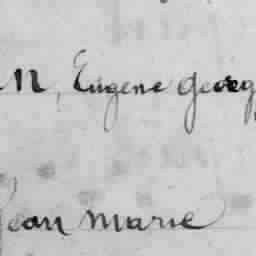 n, Eugene Georg
Jean Marie